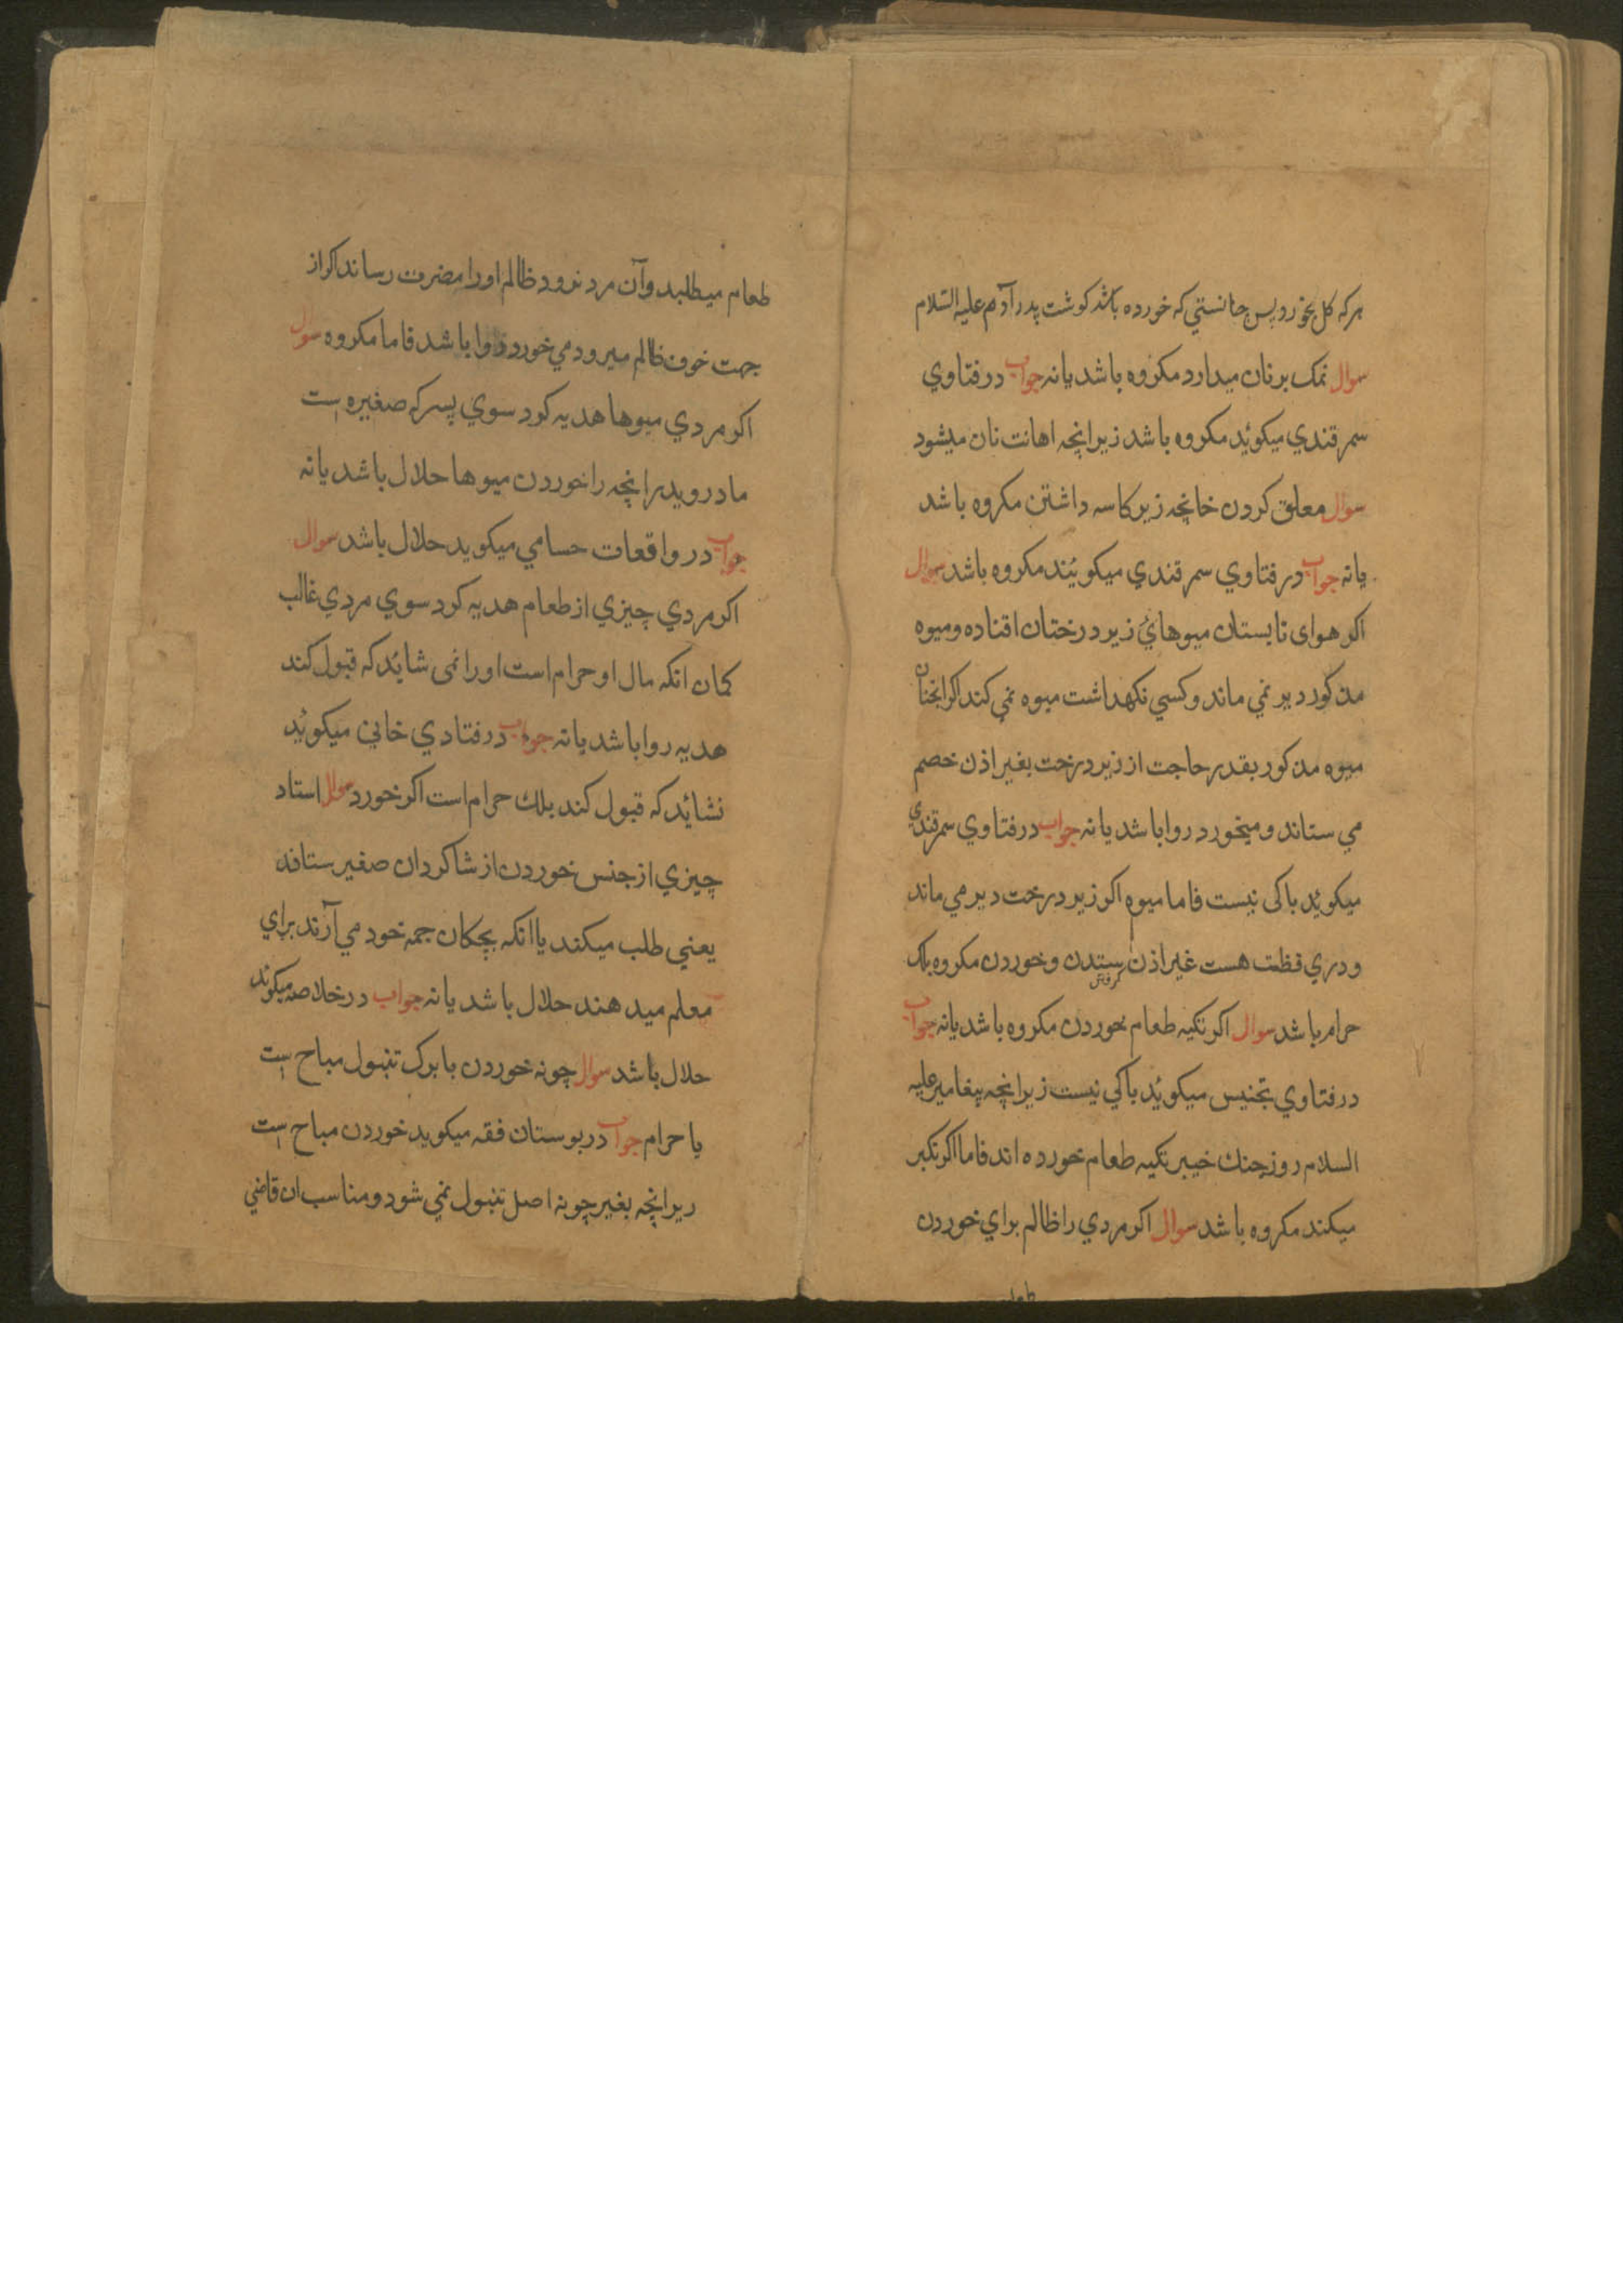 هرکه کل بخورد پس چنانستی که خورده باشد کوشت پدر آدم علیه السلام
سوال نمک برنان میدارد مکروه باشد یانه جواب در فتاوي
سمرقندي میکوئید مکروه باشد زیرانچه اهانت نان میشود
سوال معلق کردن خانچه زیر کاسه داشتن مکروه باشد
یانه جواب در فتاوي سمرقندي میکویند مکروه باشد سوال
اکر هوای تابستان میوهائ زیر درختان افتاده ومیوه
مذکور دیر نمي ماند وکسي نکهداشت میوه نمي کند اکر انچنان
میوه مذکور بقدر حاجت از زیر درخت بغیر اذن خصم
مي ستاند ومیخورد روا باشد یانه جواب در فتاوي سمرقندي
میکوید باکی نیست فاما میوه اکر زیر درخت دیر مي ماند
ودري هست غیر اذن ستدن وخوردن مکروه بلک
حرام باشد سوال اکر تکیه طعام خوردن مکروه باشد یانه جواب
در فتاوي تجنیس میکوئید باکي نیست زیرانچه پیغامبر علیه
السلام روز جنك خیبر تکیه طعام خورده اند فاما اکر تکبر
میکند مکروه باشد سوال اکر مردي را ظالم براي خوردن
طعام میطلبد وآن مرد نرود ظالم اورا مضرت رساند اکر از
جهت خوف ظالم میرود مي خورد روا باشد فاما مکروه سوال
اکر مردي میوها هدیه کرد سوي پسر که صغیره است
مادر وپدر انچه را خوردن میوها حلال باشد یانه
جواب در واقعات حسامي میکوید حلال باشد سوال
اکر مردي چیزي از طعام هدیه کرد سوي مردي غالب
کمان انکه مال او حرام است اورا نمی شائد که قبول کند
هدیه روا باشد یانه جواب در فتادي خاني میکوئید
نشائد که قبول کند بلك حرام است اکر خورد سوال استاد
چیزي از جنس خوردن از شاکردان صغیر ستاند
یعني طلب میکند یا انکه بچکان جمه خود مي آرند براي
معلم میدهند حلال باشد یانه جواب در خلاصه میکوئد
حلال باشد سوال چونه خوردن با برک تنبول مباح است
یا حرام جواب در بوستان فقه میکوید خوردن مباح است
زیرانچه بغیر چونه اصل تنبول نمي شود ومناسب ان قاضي